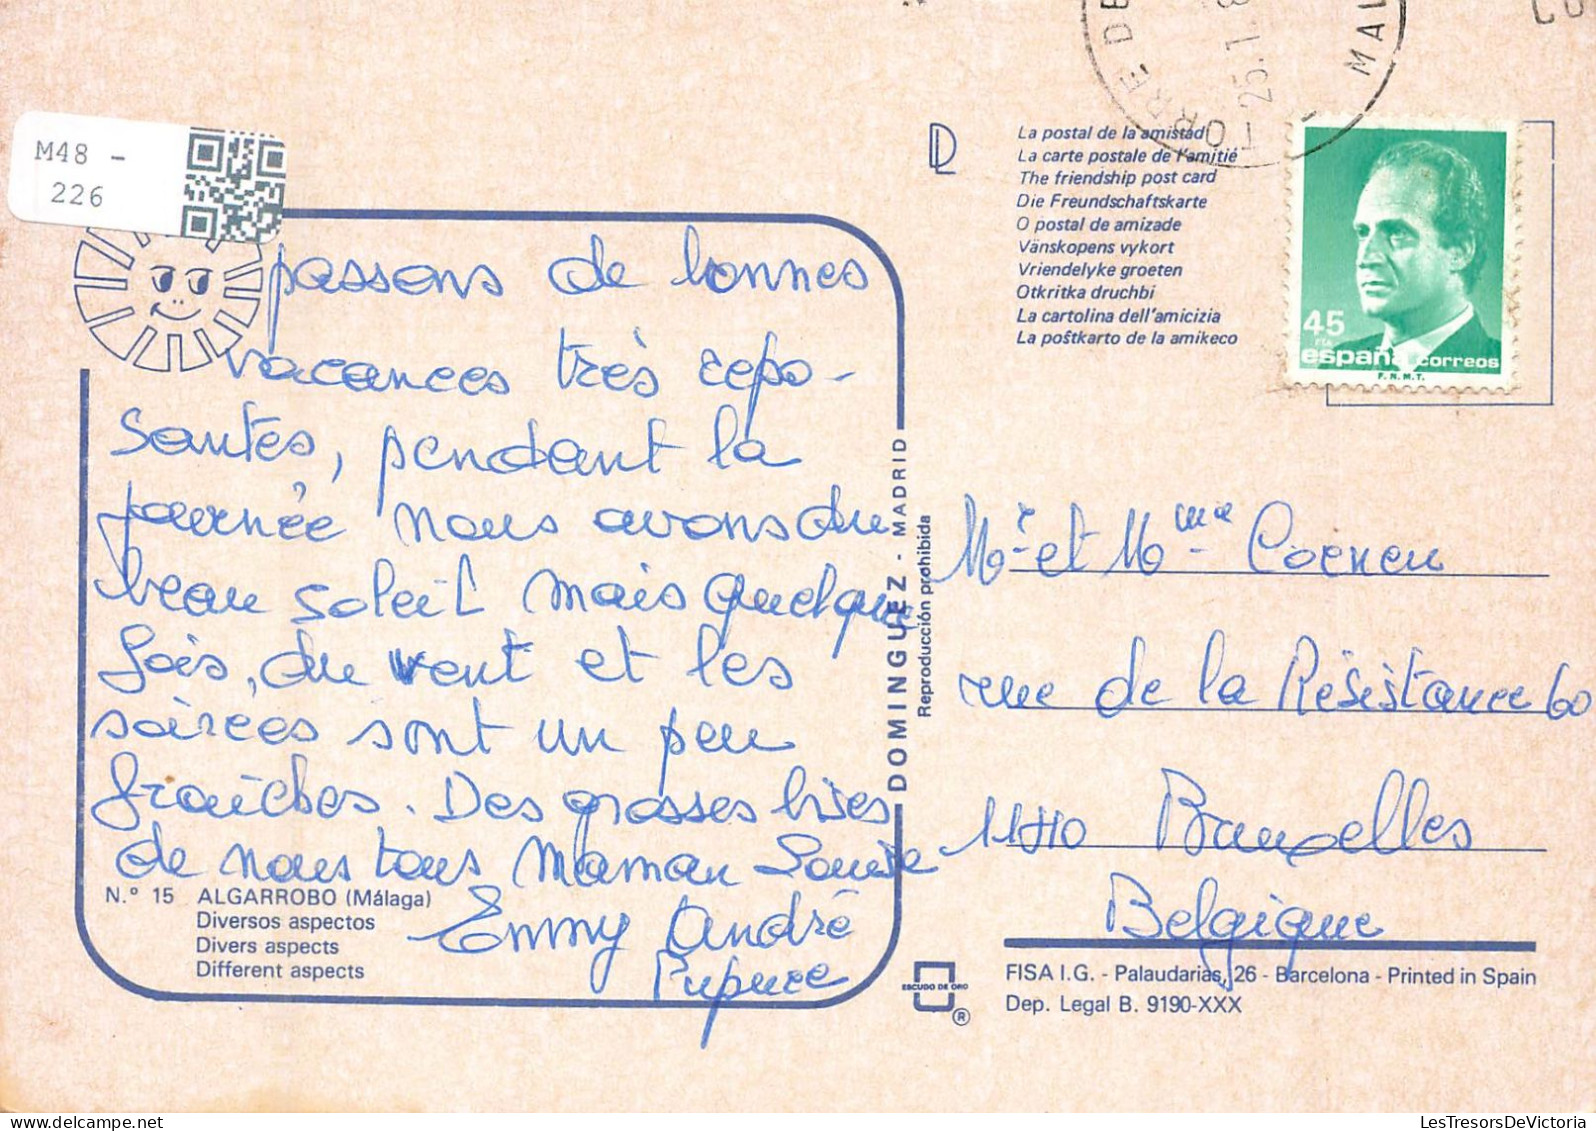 M48 -
226
TORRE DE
25.1.8
MA
La postal de la amistad
La carte postale de l'amitié
The friendship post card
Die Freundschaftskarte
O postal de amizade
Vänskopens vykort
Vriendelyke groeten
Otkritka druchbi
La cartolina dell'amicizia
La poŝtkarto de la amikeco
45
PTA
españa correos
F.N.M.T.
passons de bonnes
vacances très repo-
santes, pendant la
journée nous avons du
beau soleil mais quelque
fois, du vent et les
soirées sont un peu
fraîches. Des grosses bises
de nous tous Maman Louise
Emmy André
N.º 15 ALGARROBO (Málaga)
Diversos aspectos
Divers aspects
Different aspects
DOMINGUEZ - MADRID
Reproducción prohibida
Mr et Mme Coenen
rue de la Résistance 60
1140 Bruxelles
Belgique
ESCUDO DE ORO
®
FISA I.G. - Palaudarias, 26 - Barcelona - Printed in Spain
Dep. Legal B. 9190-XXX
LesTresorsDeVictoria.com